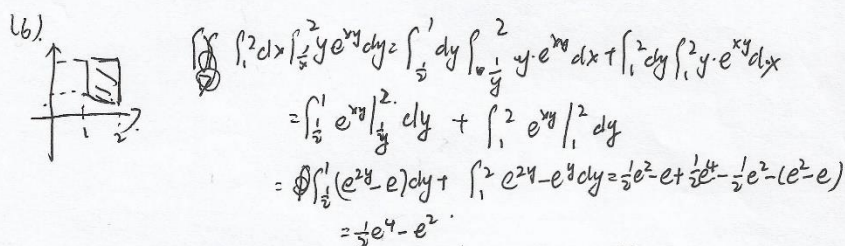 (6).
∫₁² dx ∫_{1/x}^2 y e^{xy} dy = ∫_{1/2}^1 dy ∫_{1/y}^2 y·e^{xy} dx + ∫₁² dy ∫₁² y·e^{xy} dx
= ∫_{1/2}^1 e^{xy} |_{1/y}^2 dy + ∫₁² e^{xy} |₁² dy
= ∫_{1/2}^1 (e^{2y} - e) dy + ∫₁² e^{2y} - e^y dy = ½e² - e + ½e⁴ - ½e² - (e² - e)
= ½e⁴ - e²
1 2